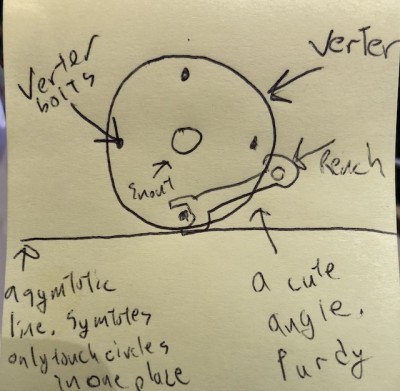 Verter
bolts
Verter
Snout
Rench
asymtotic
line. Symtotes
only touch circles
in one place
a cute
angle.
Purdy